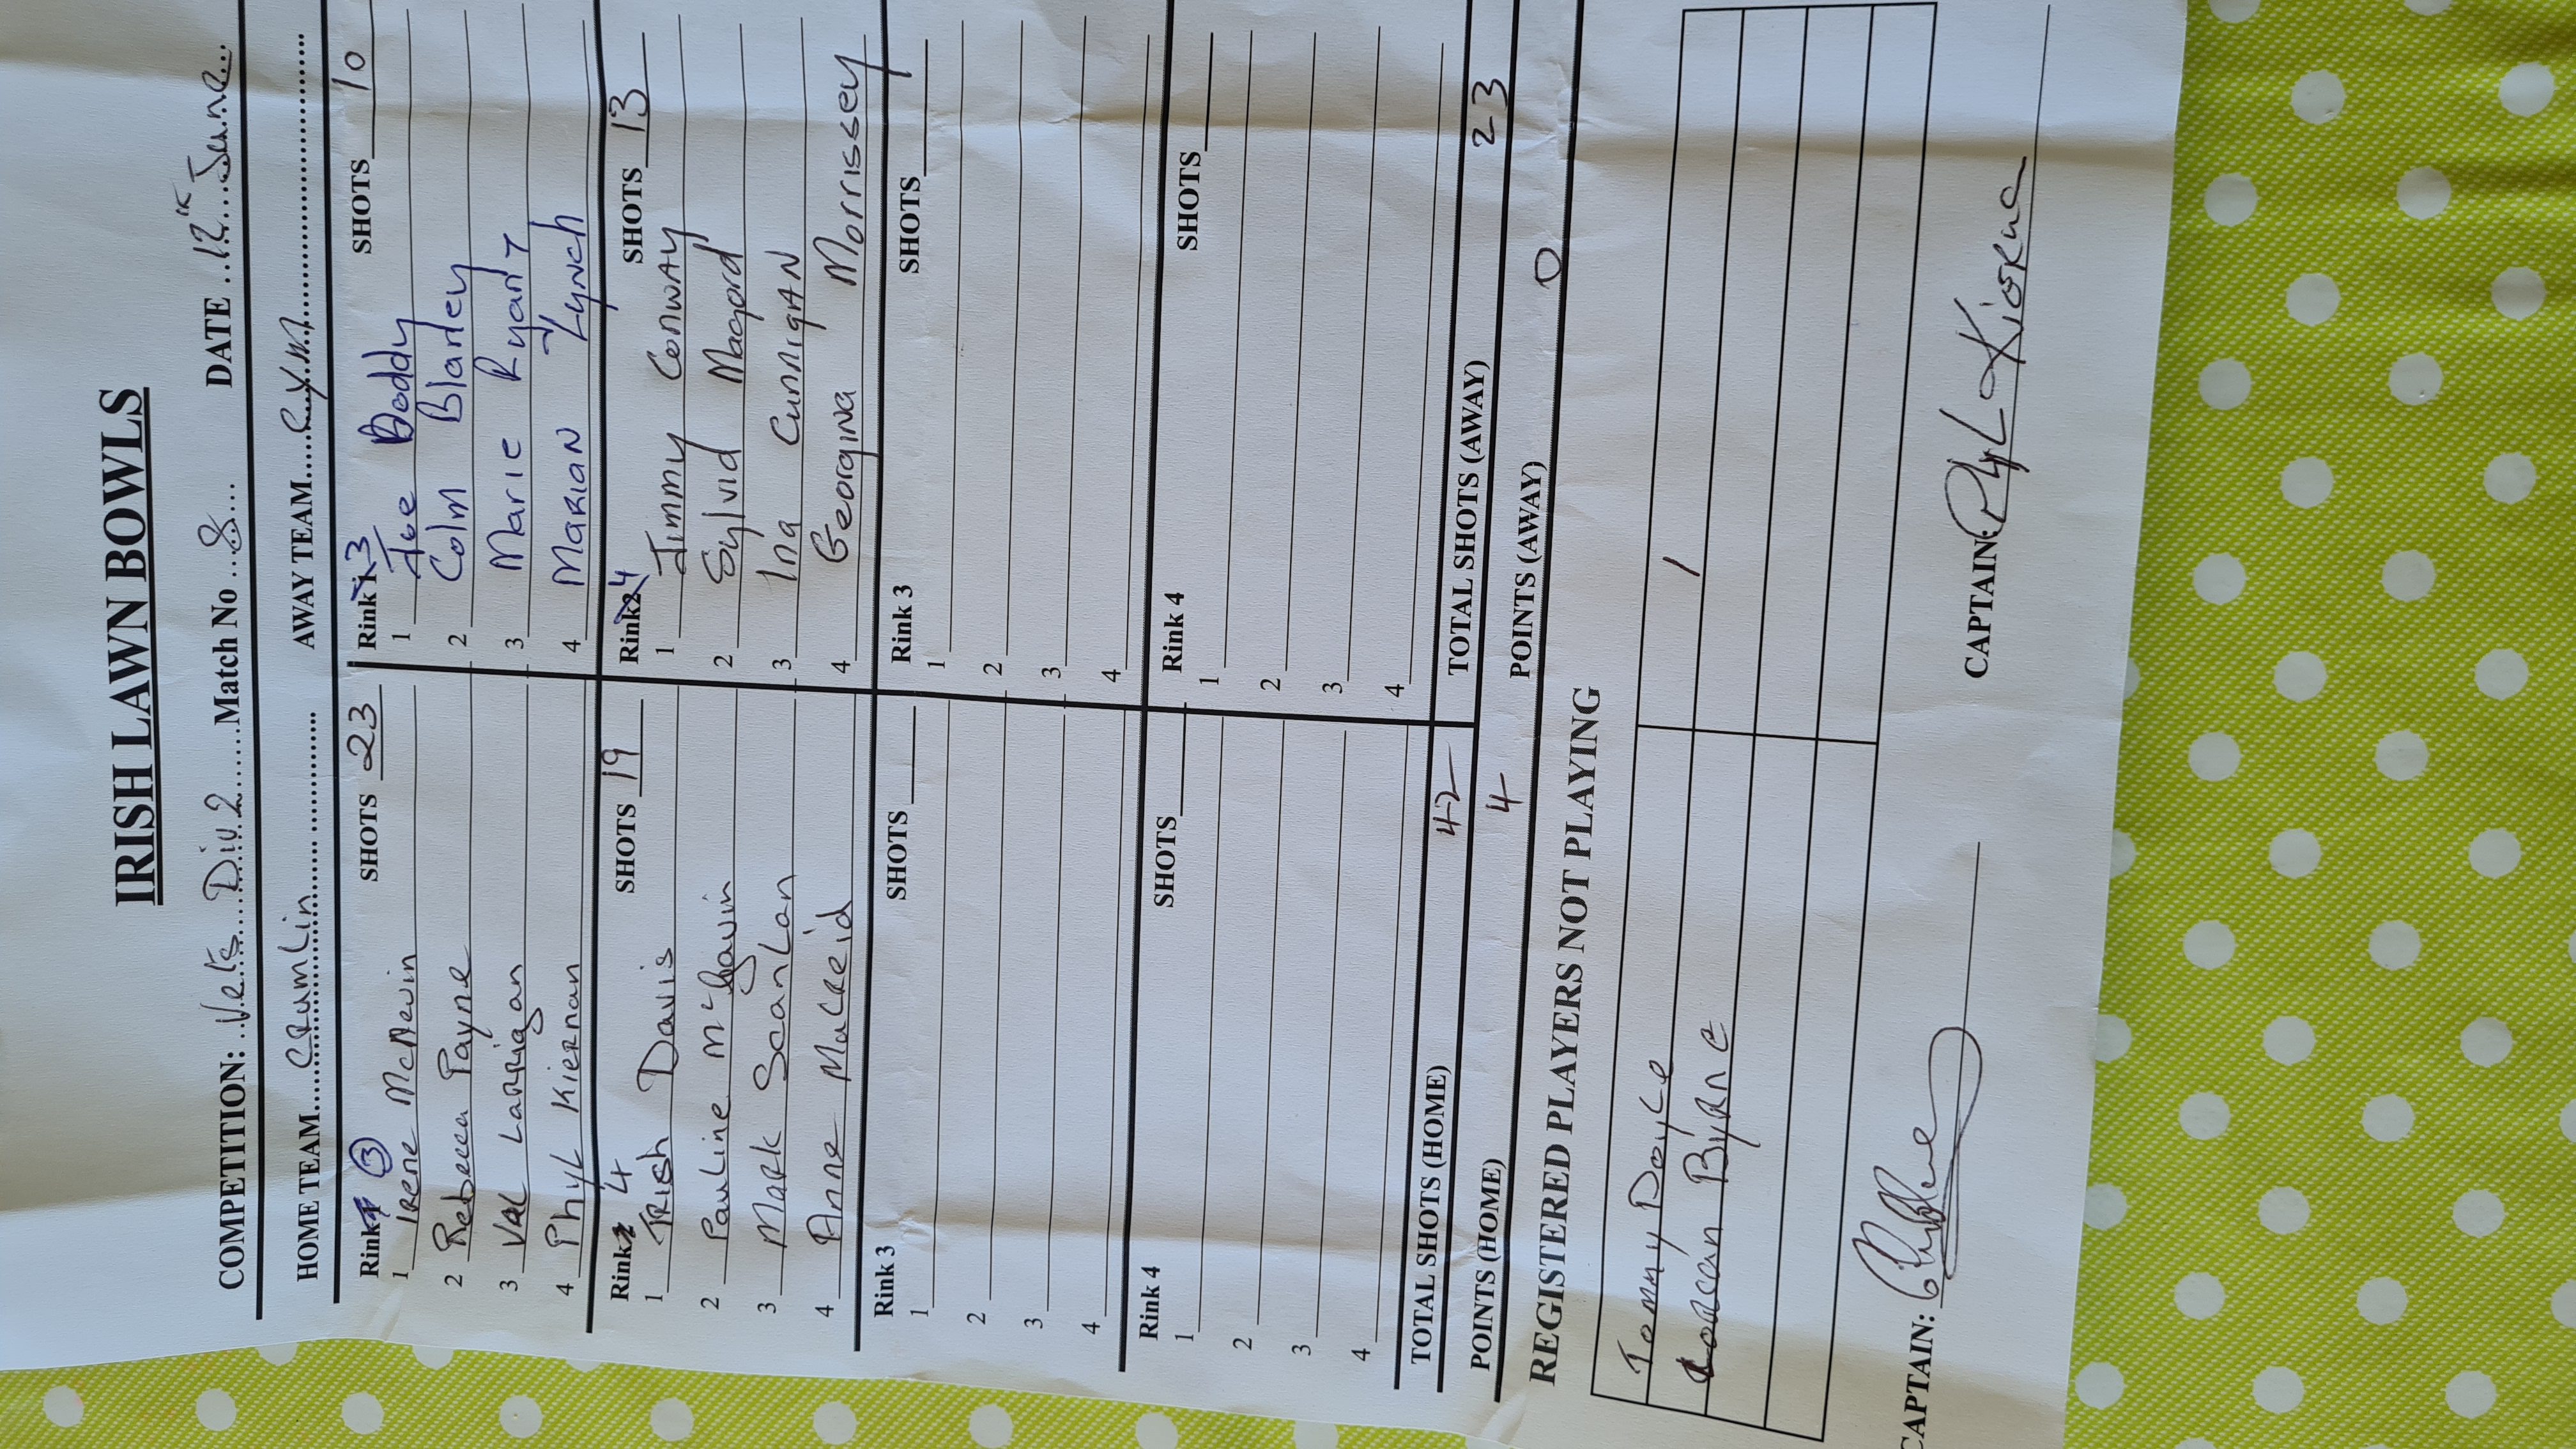 IRISH LAWN BOWLS
COMPETITION: Vets Div 2 Match No 8 DATE 12th June
HOME TEAM Crumlin AWAY TEAM C.Y.M.
Rink 3 SHOTS 23
1 Irene McNevin
2 Rebecca Payne
3 Val Larrigan
4 Phyl Kiernan
Rink 3 SHOTS 10
1 Joe Boddy
2 Colm Blarley
3 Marie Ryan
4 Marian Lynch
Rink 4 SHOTS 19
1 Trish Davis
2 Pauline McGavin
3 Mark Scanlan
4 Anne Mulreid
Rink 4 SHOTS 13
1 Jimmy Conway
2 Sylvia Magord
3 Ina Cunnigan
4 Georgina Morrissey
Rink 3 SHOTS
1
2
3
4
Rink 3 SHOTS
1
2
3
4
Rink 4 SHOTS
1
2
3
4
Rink 4 SHOTS
1
2
3
4
TOTAL SHOTS (HOME) 42 TOTAL SHOTS (AWAY) 23
POINTS (HOME) 4 POINTS (AWAY) 0
REGISTERED PLAYERS NOT PLAYING
Tommy Doyle
Lorcan Byrne
CAPTAIN: CAPTAIN: Phyl Kiernan